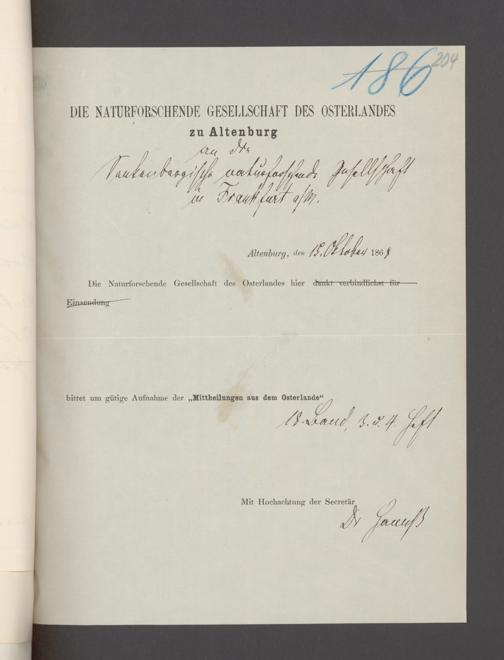 186 204
DIE NATURFORSCHENDE GESELLSCHAFT DES OSTERLANDES
zu Altenburg
an die
Senkenbergische naturforschende Gesellschaft
in Frankfurt a/M.
Altenburg, den 15. Oktober 1868
Die Naturforschende Gesellschaft des Osterlandes hier dankt verbindlichst für
Einsendung
bittet um gütige Aufnahme der „Mittheilungen aus dem Osterlande“
18. Band, 3. u. 4. Heft
Mit Hochachtung der Secretär
Dr